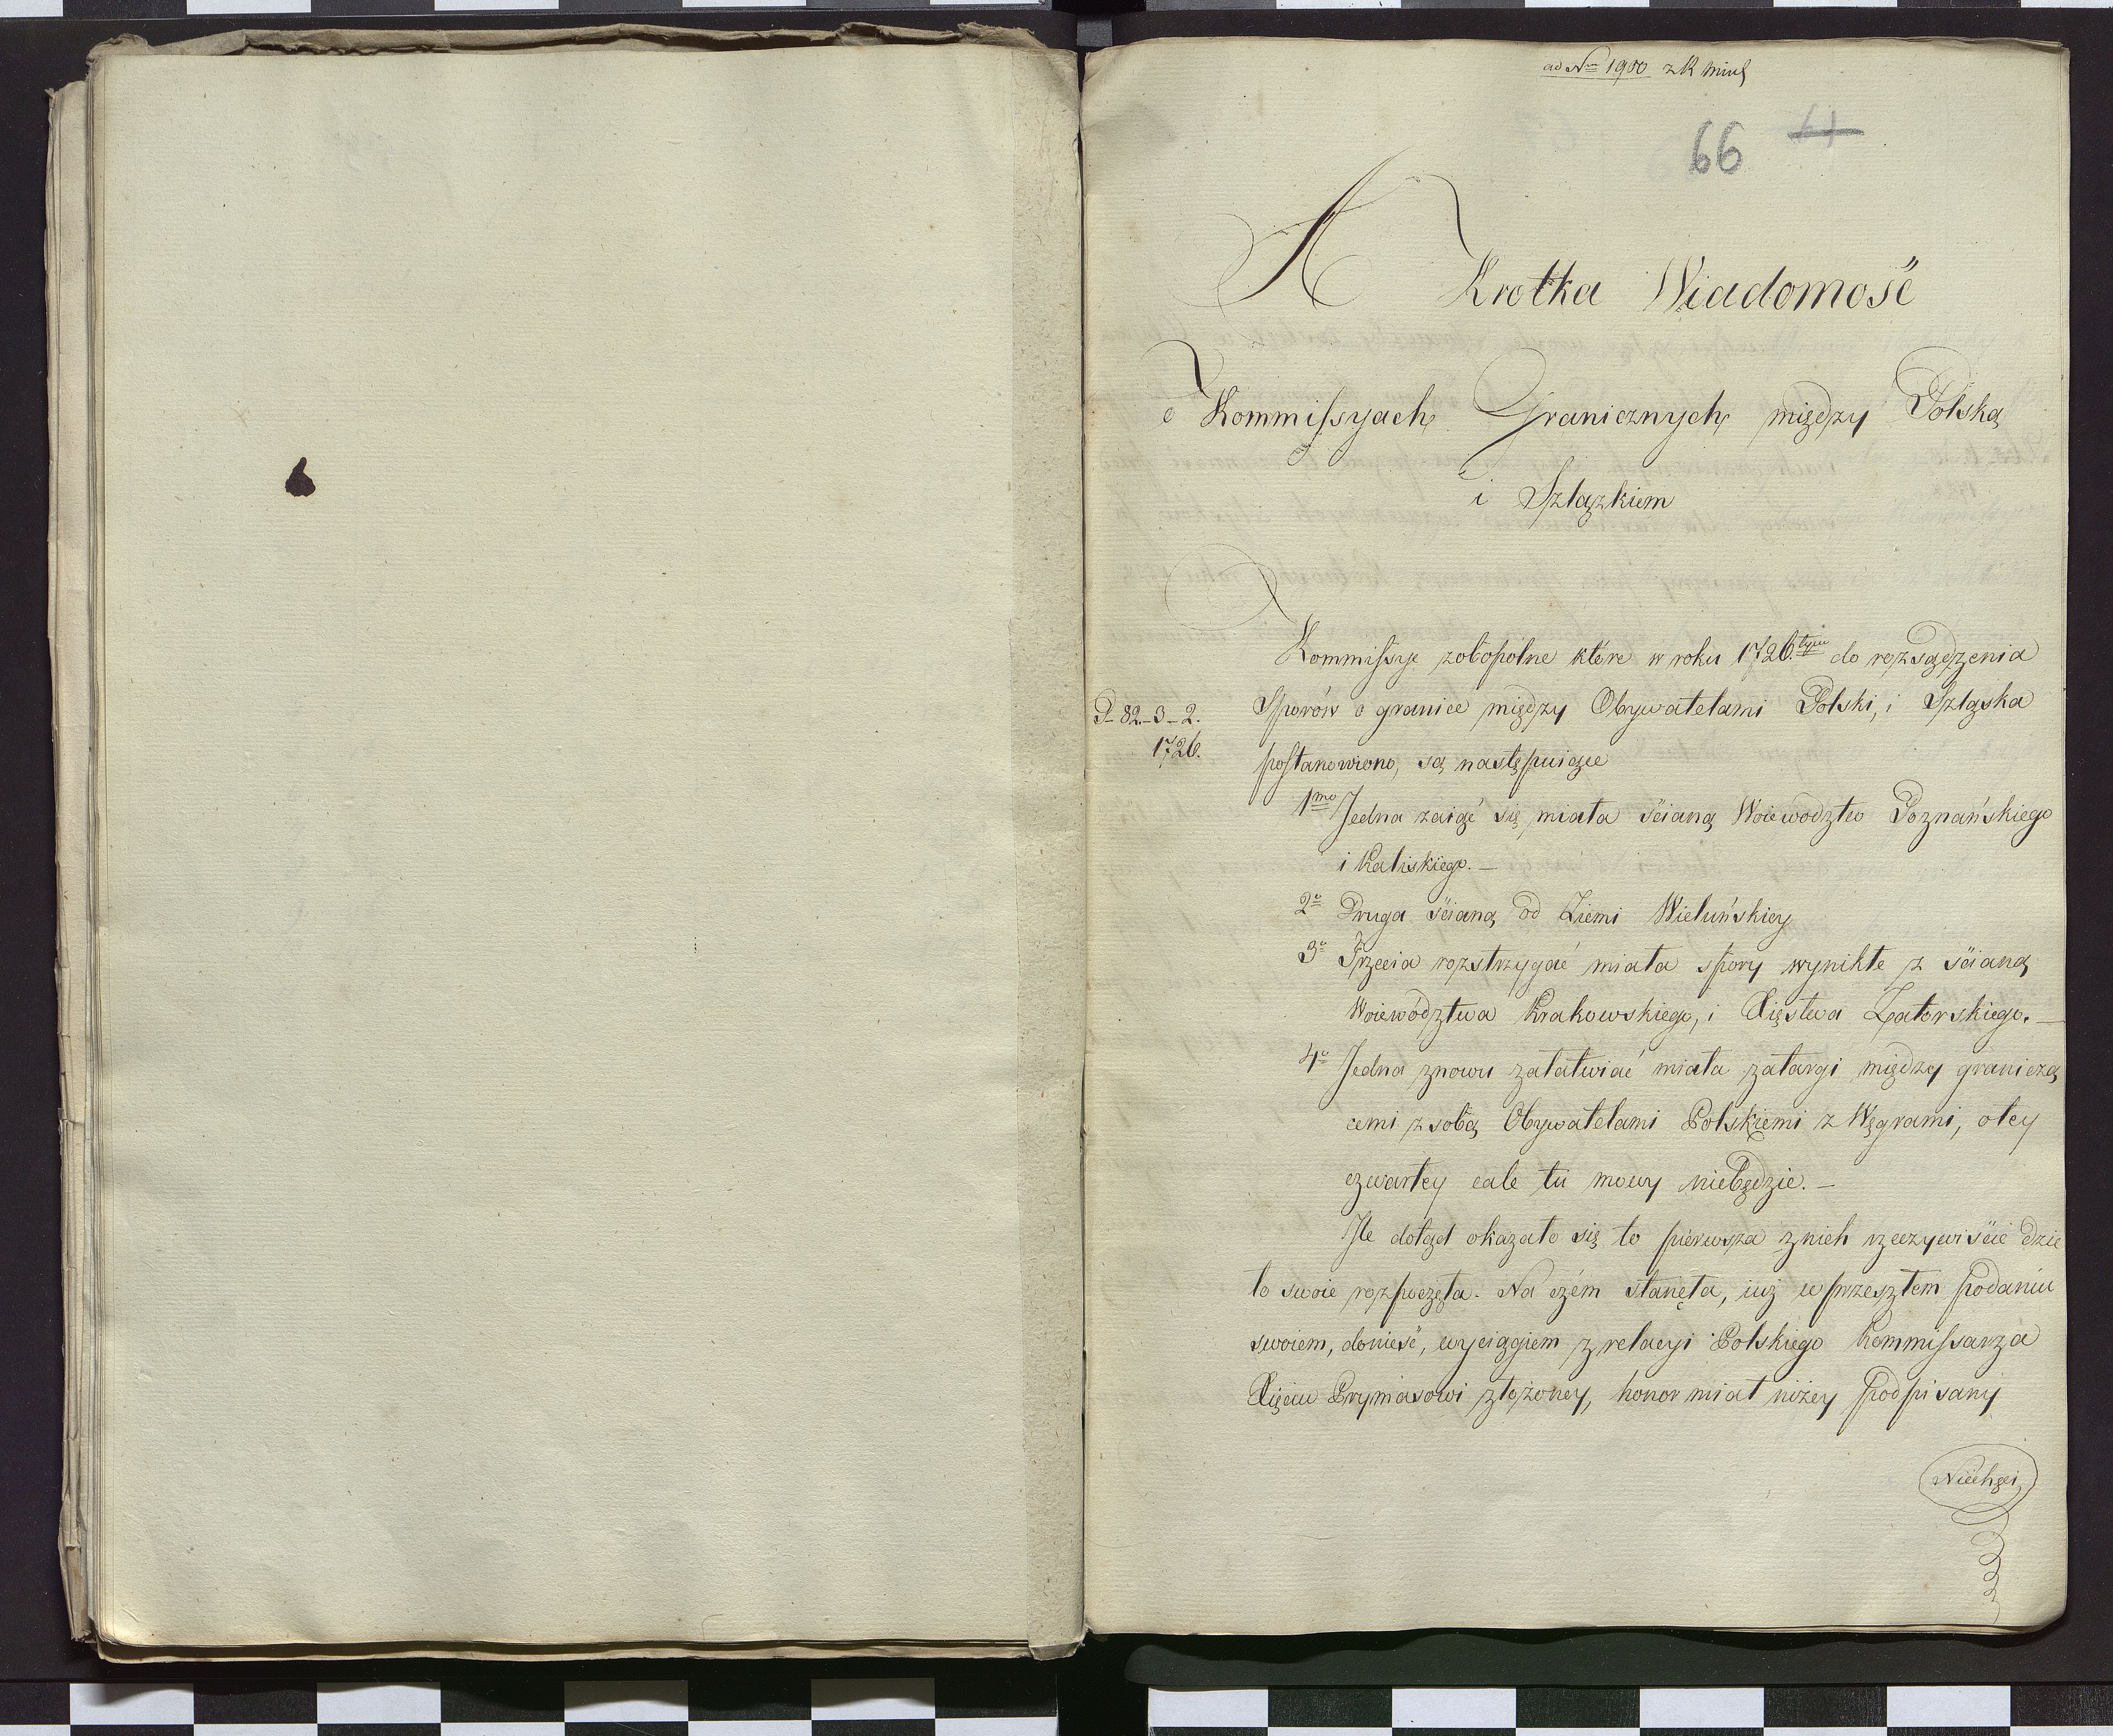 ad Nrm 1900 z R
66 61
Krotka Wiadomość
o Kommissyach Granicznych między Polską
i Szlązkiem
Kommissye zobopolne które w roku 1726.tym do rozsądzenia
D-82.-3-2.
1726.
Sporów o granice między Obywatelami Polski, i Szląska
postanowiono, są następuiące
1mo Jedna zaiąć się miała ścianą Woiewodztw Poznańskiego
i Kaliskiego. —
2o Druga ścianą od Ziemi Wieluńskiey
3o Trzecia rozstrzygać miała spory wynikłe z ścianą
Woiewództwa Krakowskiego, i Xięstwa Zatorskiego. —
4o Jedna znowu załatwiać miała zatargi między graniczą
cemi z sobą Obywatelami Polskiemi z Węgrami, o tey
czwartey cale tu mowy niebędzie. —
Ile dotąd okazało się to pierwsza z nich rzeczywiście dzie
ło swoie rozpoczęła. Na czém stanęła, iuż w przeszłem podaniu
swoiem, donieść, wyciągiem z relacyi Polskiego Kommissarza
Xięciu Prymasowi złożoney, honor miał niżey podpisany
Niechęci